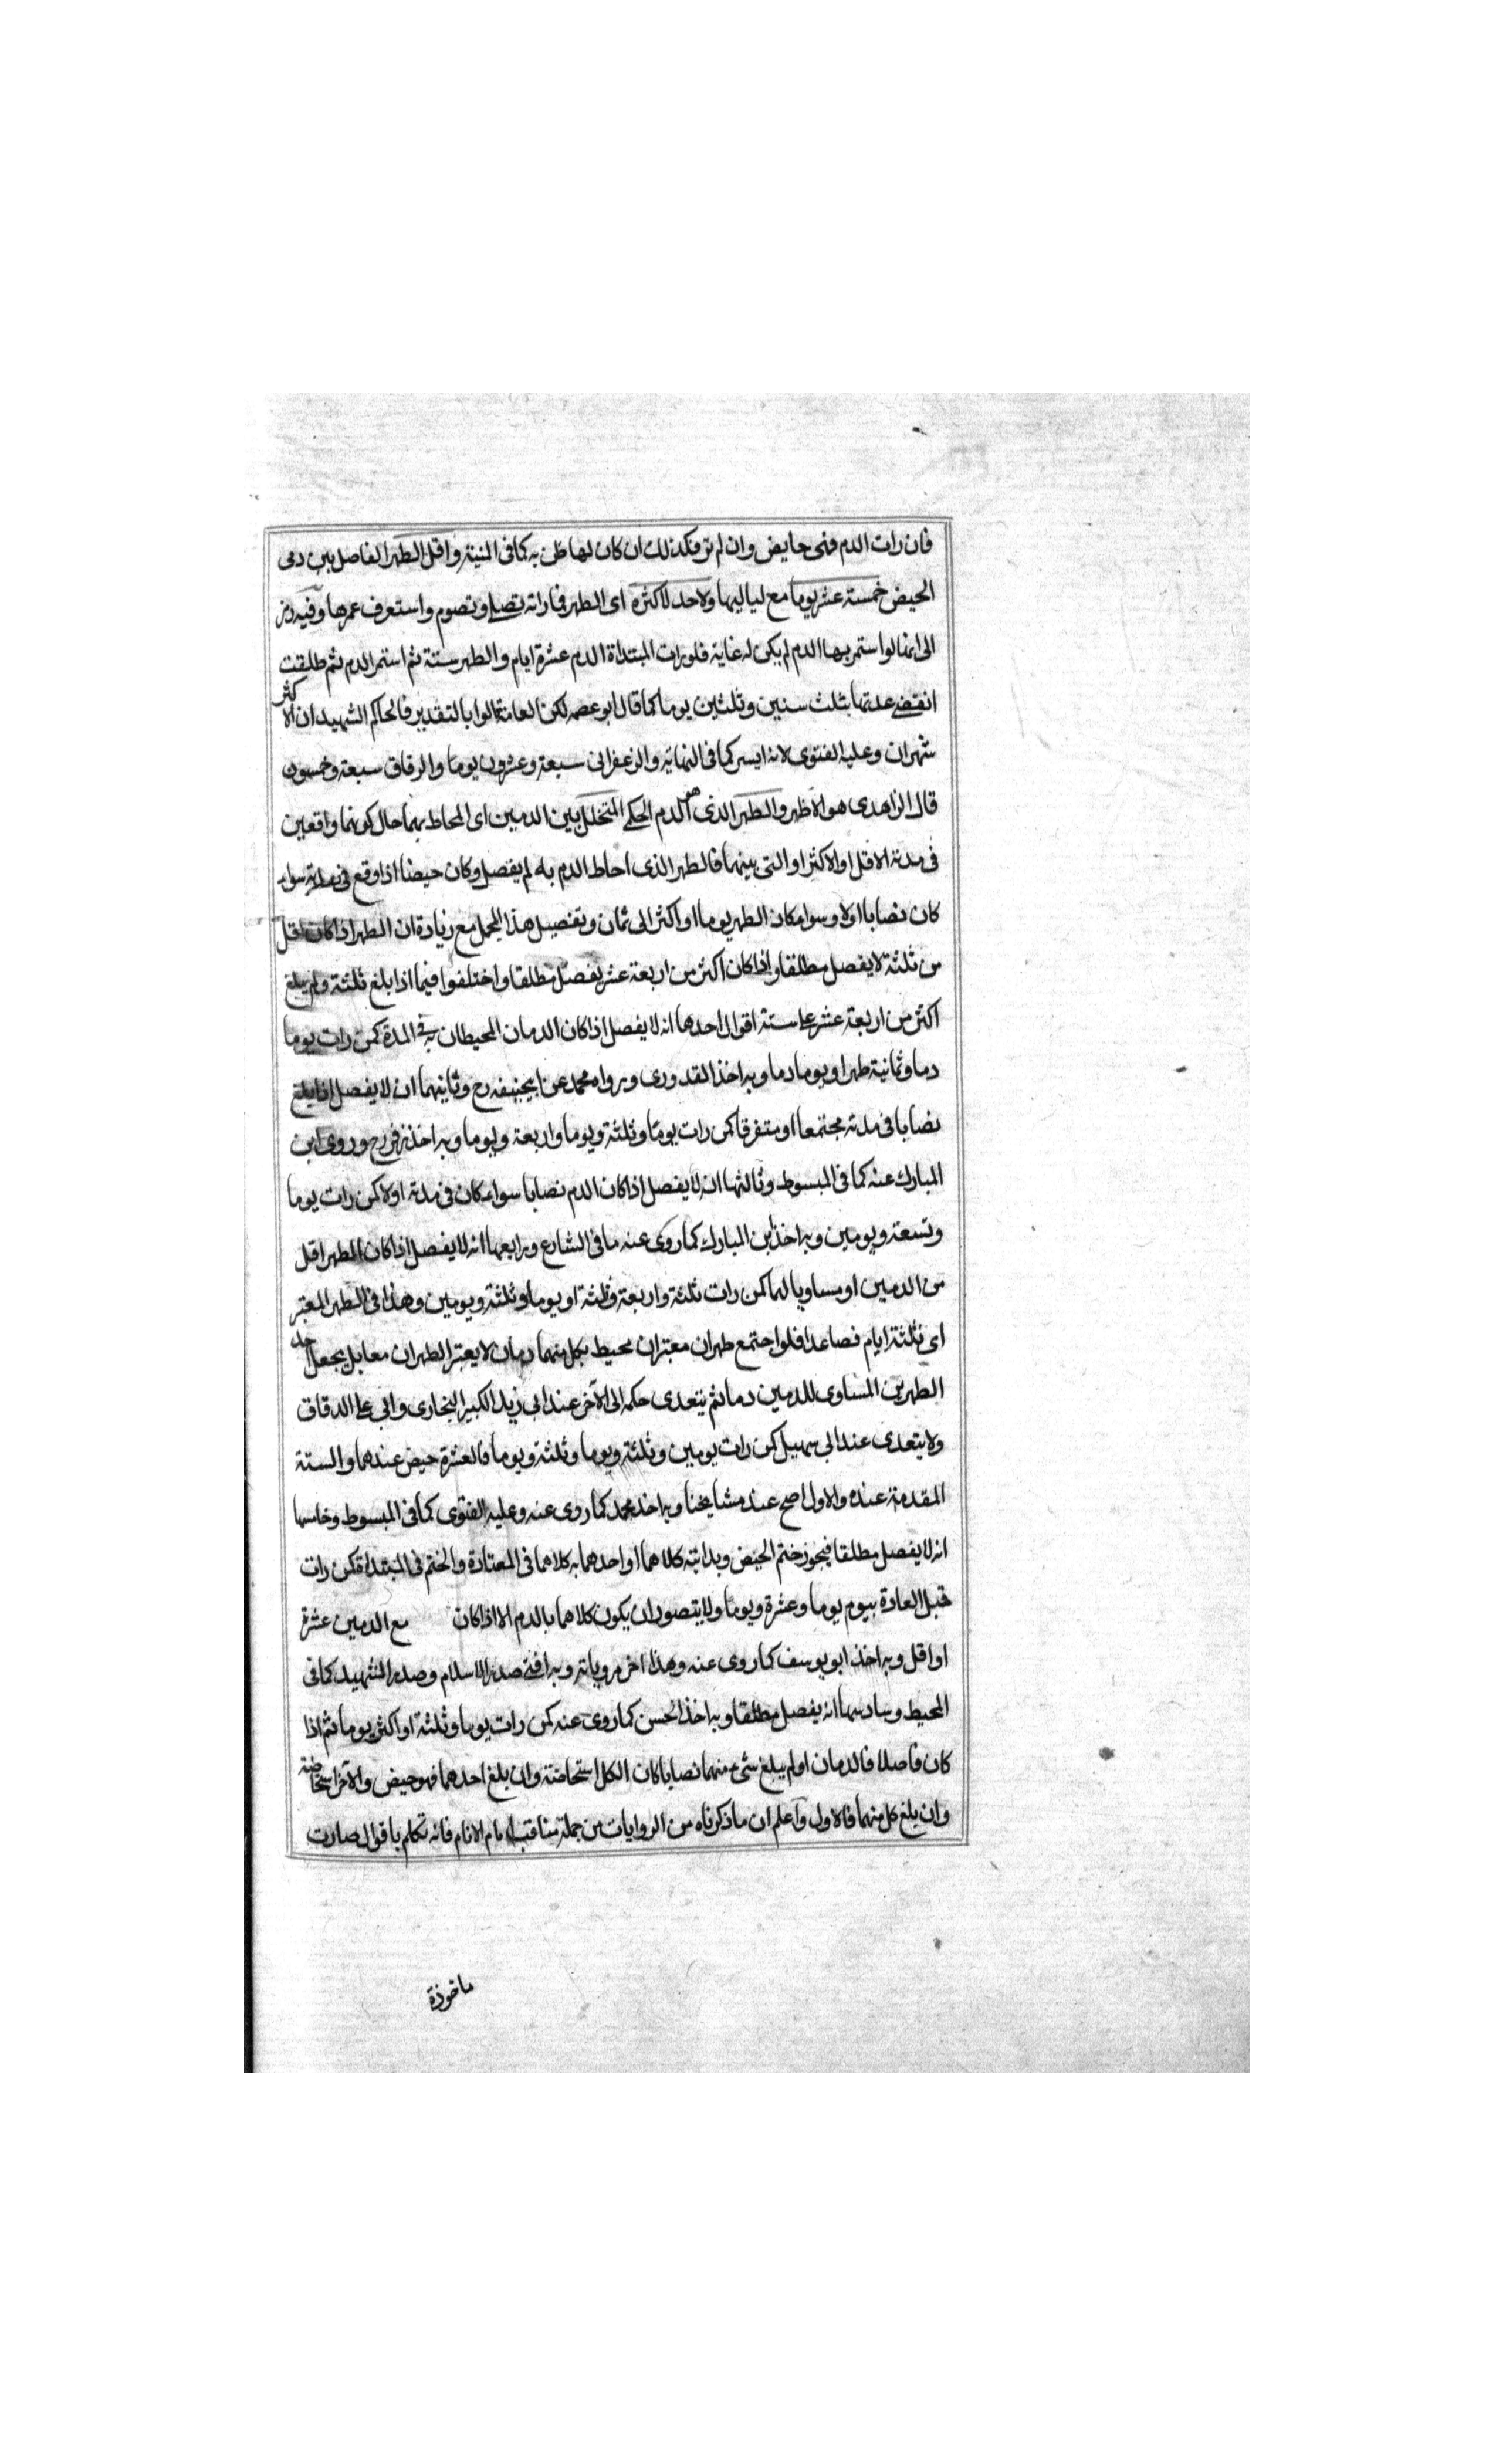 فان رات الدم فهى حايض وان لم تر فكذلك ان كان لها ظن به كما فى المنية واقل الطهر الفاصل بين دمى
الحيض خمسة عشر يوما مع لياليها ولا حد لاكثره اى الطهر فما راته تصلى وتصوم واستعرف عمرها وفيه رمز
الى انها لو استمر بها الدم لم يكن له غاية فلو رات المبتداة الدم عشرة ايام والطهر ستة ثم استمر الدم ثم طلقت
انقضى عدتها بثلث سنين وثلثين يوما كما قال ابو عصمه لكن العامة قالوا بالتقدير فالحاكم الشهيد ان الاكثر
شهران وعليه الفتوى لانه ايسر كما فى النهاية والزعفرانى سبعة وعشرون يوما والرقاق سبعة وخمسون
قال الزاهدى هو الاظهر والطهر الذى هو الدم الحكمى المتخلل بين الدمين اى المحاط بهما حال كونهما واقعين
فى مدة الاقل او الاكثر او التى بينهما فالطهر الذى احاط الدم به لم يفصل وكان حيضا اذا وقع فى مدته سواء
كان نصابا اولا وسواء كان الطهر يوما او اكثر الى ثمان وتفصيل هذا المجمل مع زيادة ان الطهر اذا كان اقل
من ثلثة لا يفصل مطلقا واذا كان اكثر من اربعة عشر يفصل مطلقا واختلفوا فيما اذا بلغ ثلثة ولم يبلغ
اكثر من اربعة عشر على ستة اقوال احدها انه لا يفصل اذا كان الدمان المحيطان به فى المدة كمن رات يوما
دما وثمانية طهرا ويوما دما وبه اخذ القدورى ورواه محمد عن ابيحنيفه رح وثانيهما ان لا يفصل اذا بلغ
نصابا فى مدته مجتمعا او متفرقا كمن رات يوما وثلثة ويوما واربعة ويوما وبه اخذ زفر رح وروى ابن
المبارك عنه كما فى المبسوط وثالثها انه لا يفصل اذا كان الدم نصابا سواء كان فى مدته اولا كمن رات يوما
وتسعة ويومين وبه اخذ ابن المبارك كما روى عنه ما فى الشارع ورابعها انه لا يفصل اذا كان الطهر اقل
من الدمين او مساويا لهما كمن رات ثلثة واربعة وثلثة او يوما وثلثة ويومين وهذا فى الطهر المعتبر
اى ثلثة ايام فصاعدا فلو اجتمع طهران معتبران محيط بكل منهما دمان لا يعتبر الطهران معا بل يجعل احد
الطهرين المساوى للدمين دما ثم يتعدى حكمه الى الآخر عند ابى زيد الكبير البخارى وابى على الدقاق
ولا يتعدى عند ابى سهيل كمن رات يومين وثلثة ويوما وثلثة ويوما فالعشرة حيض عندهما والستة
المقدمة عنده والاول اصح عند مشايخنا وبه اخذ محمد كما روى عنه وعليه الفتوى كما فى المبسوط وخامسها
انه لا يفصل مطلقا فيجوز ختم الحيض وبدايته كلاهما او احدهما به كلاهما فى المعتادة والختم فى المبتداة كمن رات
قبل العادة بيوم يوما وعشرة ويوما ولا يتصور ان يكون كلاهما بالدم الا اذا كان مع الدمين عشرة
او اقل وبه اخذ ابو يوسف كما روى عنه وهذا اخر مروياته وبه افتى صدر الاسلام وصدر الشهيد كما فى
المحيط وسادسها انه يفصل مطلقا وبه اخذ الحسن كما روى عنه كمن رات يوما وثلثة او اكثر يوما ثم اذا
كان فاصلا فالدمان او لم يبلغ شىء منهما نصابا كان الكل استحاضة وان بلغ احدهما فهو حيض والآخر استحاضة
وان بلغ كل منهما فالاول واعلم ان ما ذكرناه من الروايات من جملة مناقب امام الانام فانه تكلم باقوال صارت
ماخوذة